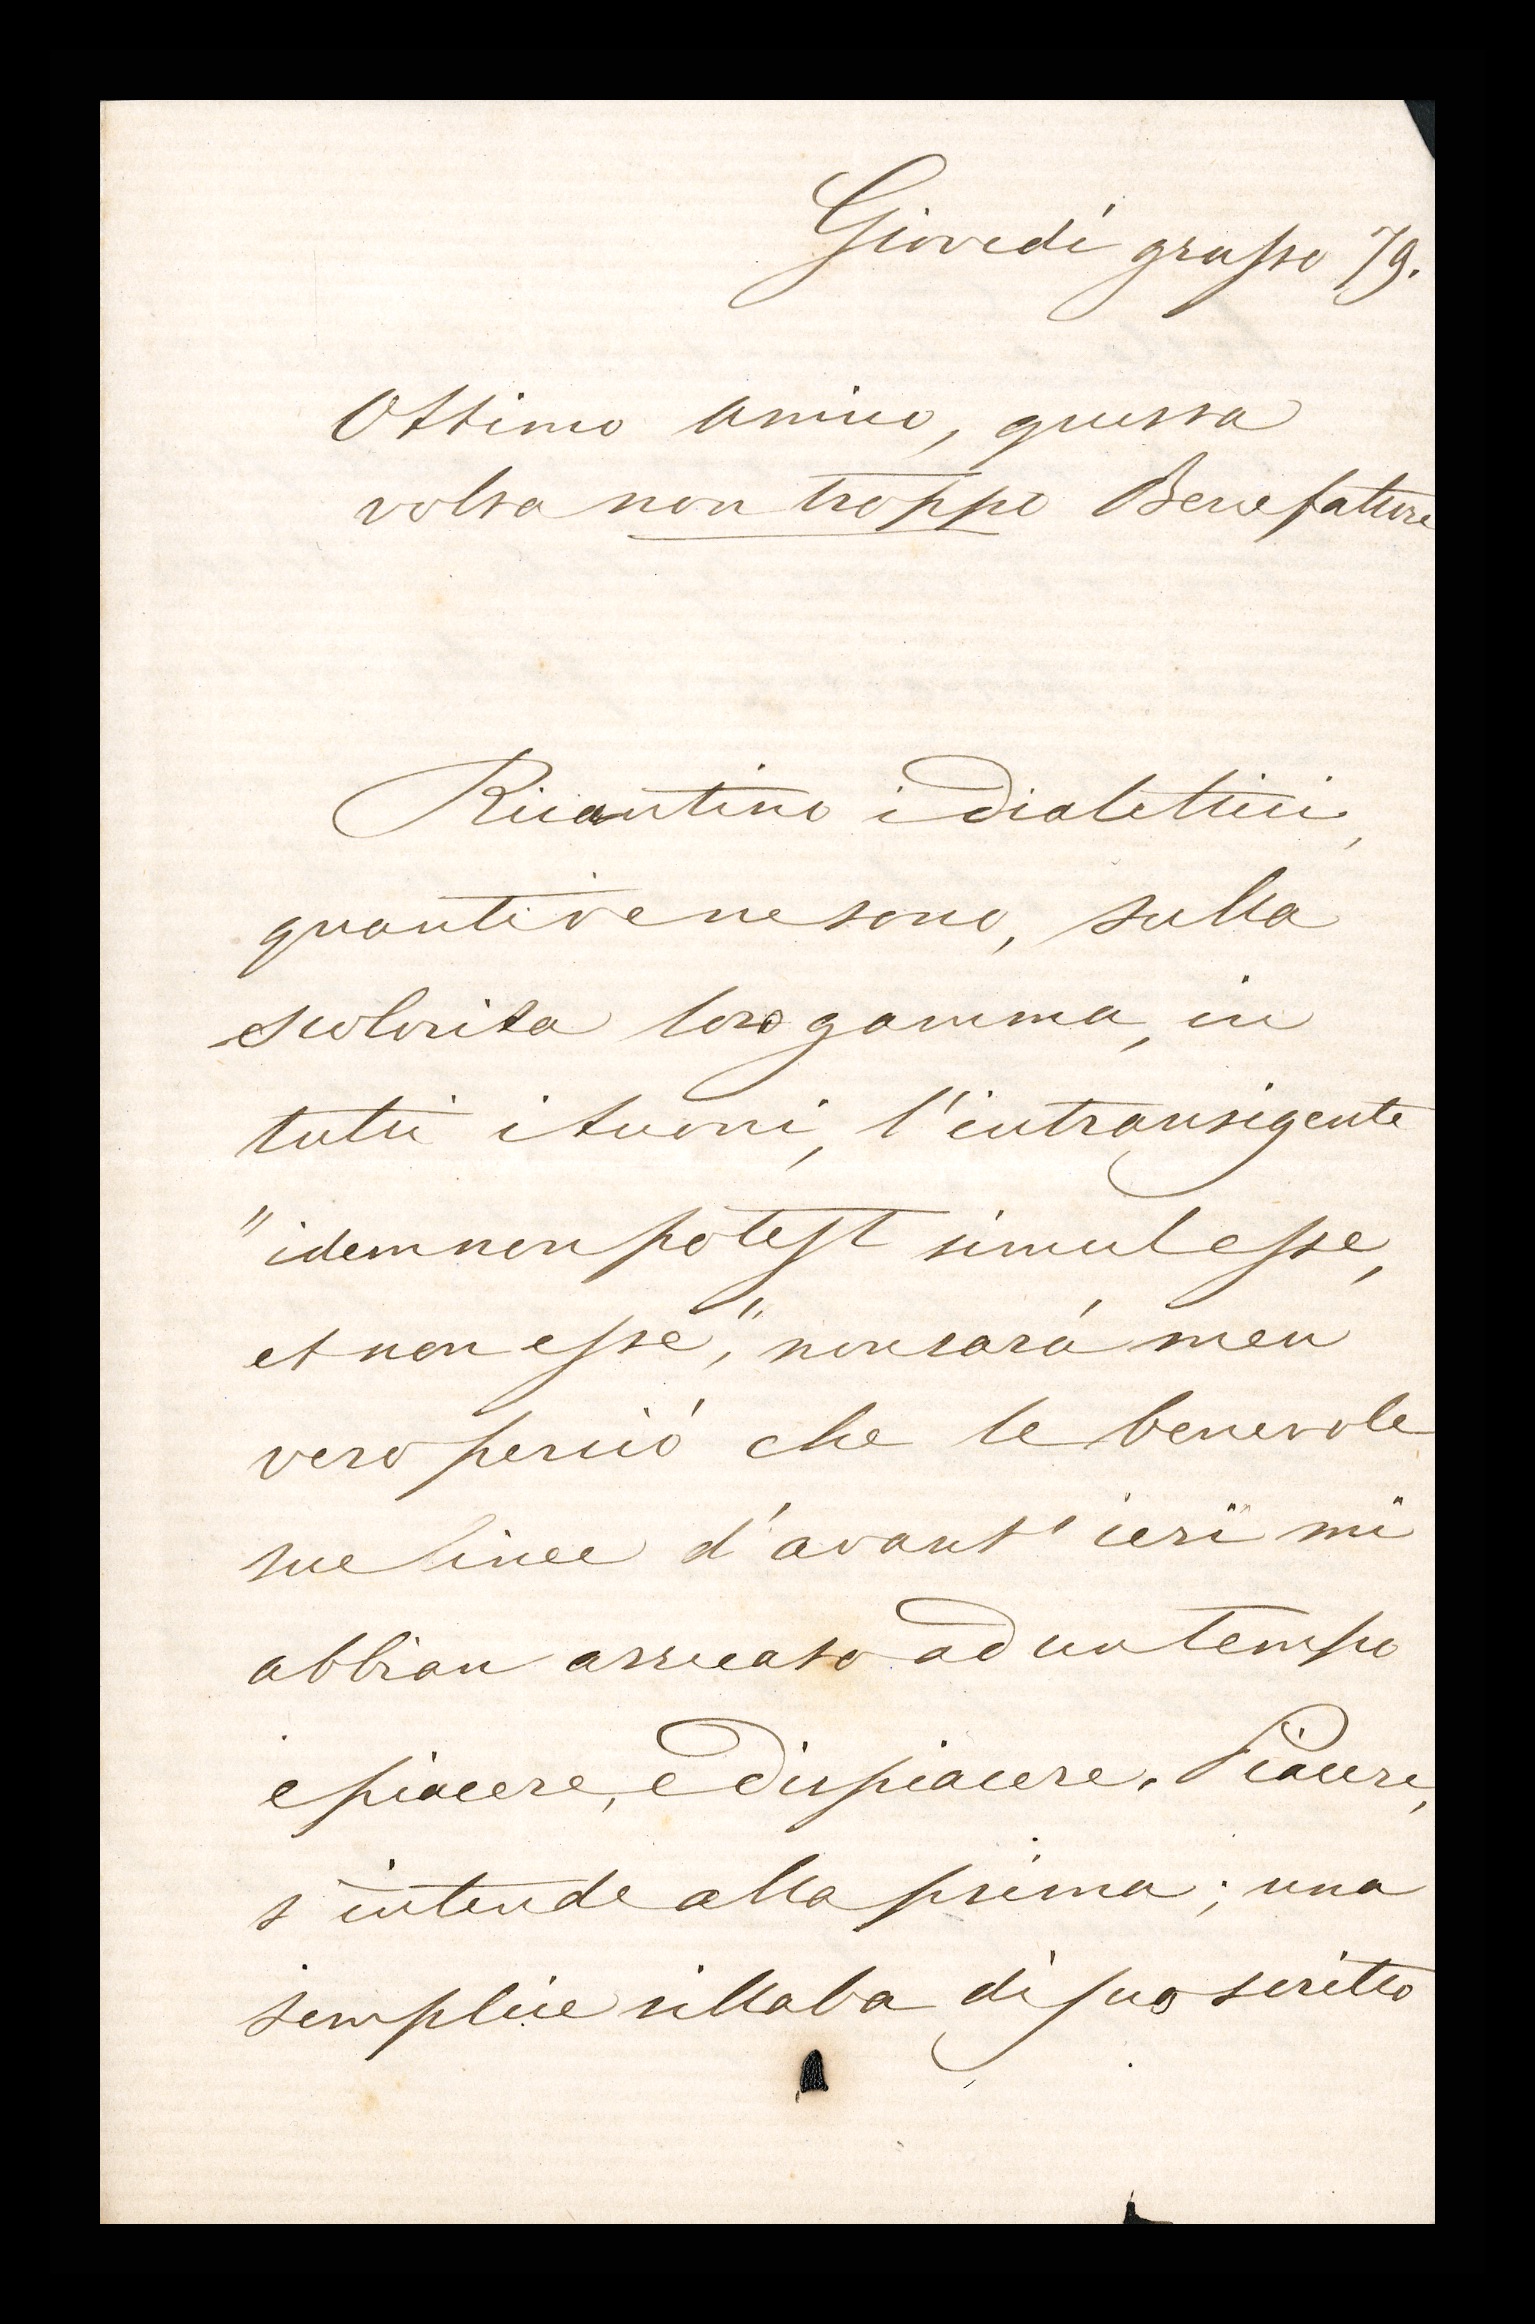 Giovedí grasso 79.
Ottimo amico, questa
volta non troppo Benefattore
Ricantino i dialettici,
quanti ve ne sono, sulla
scolorita loro gamma, in
tutti i tuoni, l'intransigente
"idem non potest simul esse,
et non esse," non sará men
vero perció che le benevole
sue linee d'avant'ieri mi
abbian arrecato ad un tempo
e piacere, e dispiacere. Piacere,
s'intende alla prima; una
semplice sillaba di suo scritto